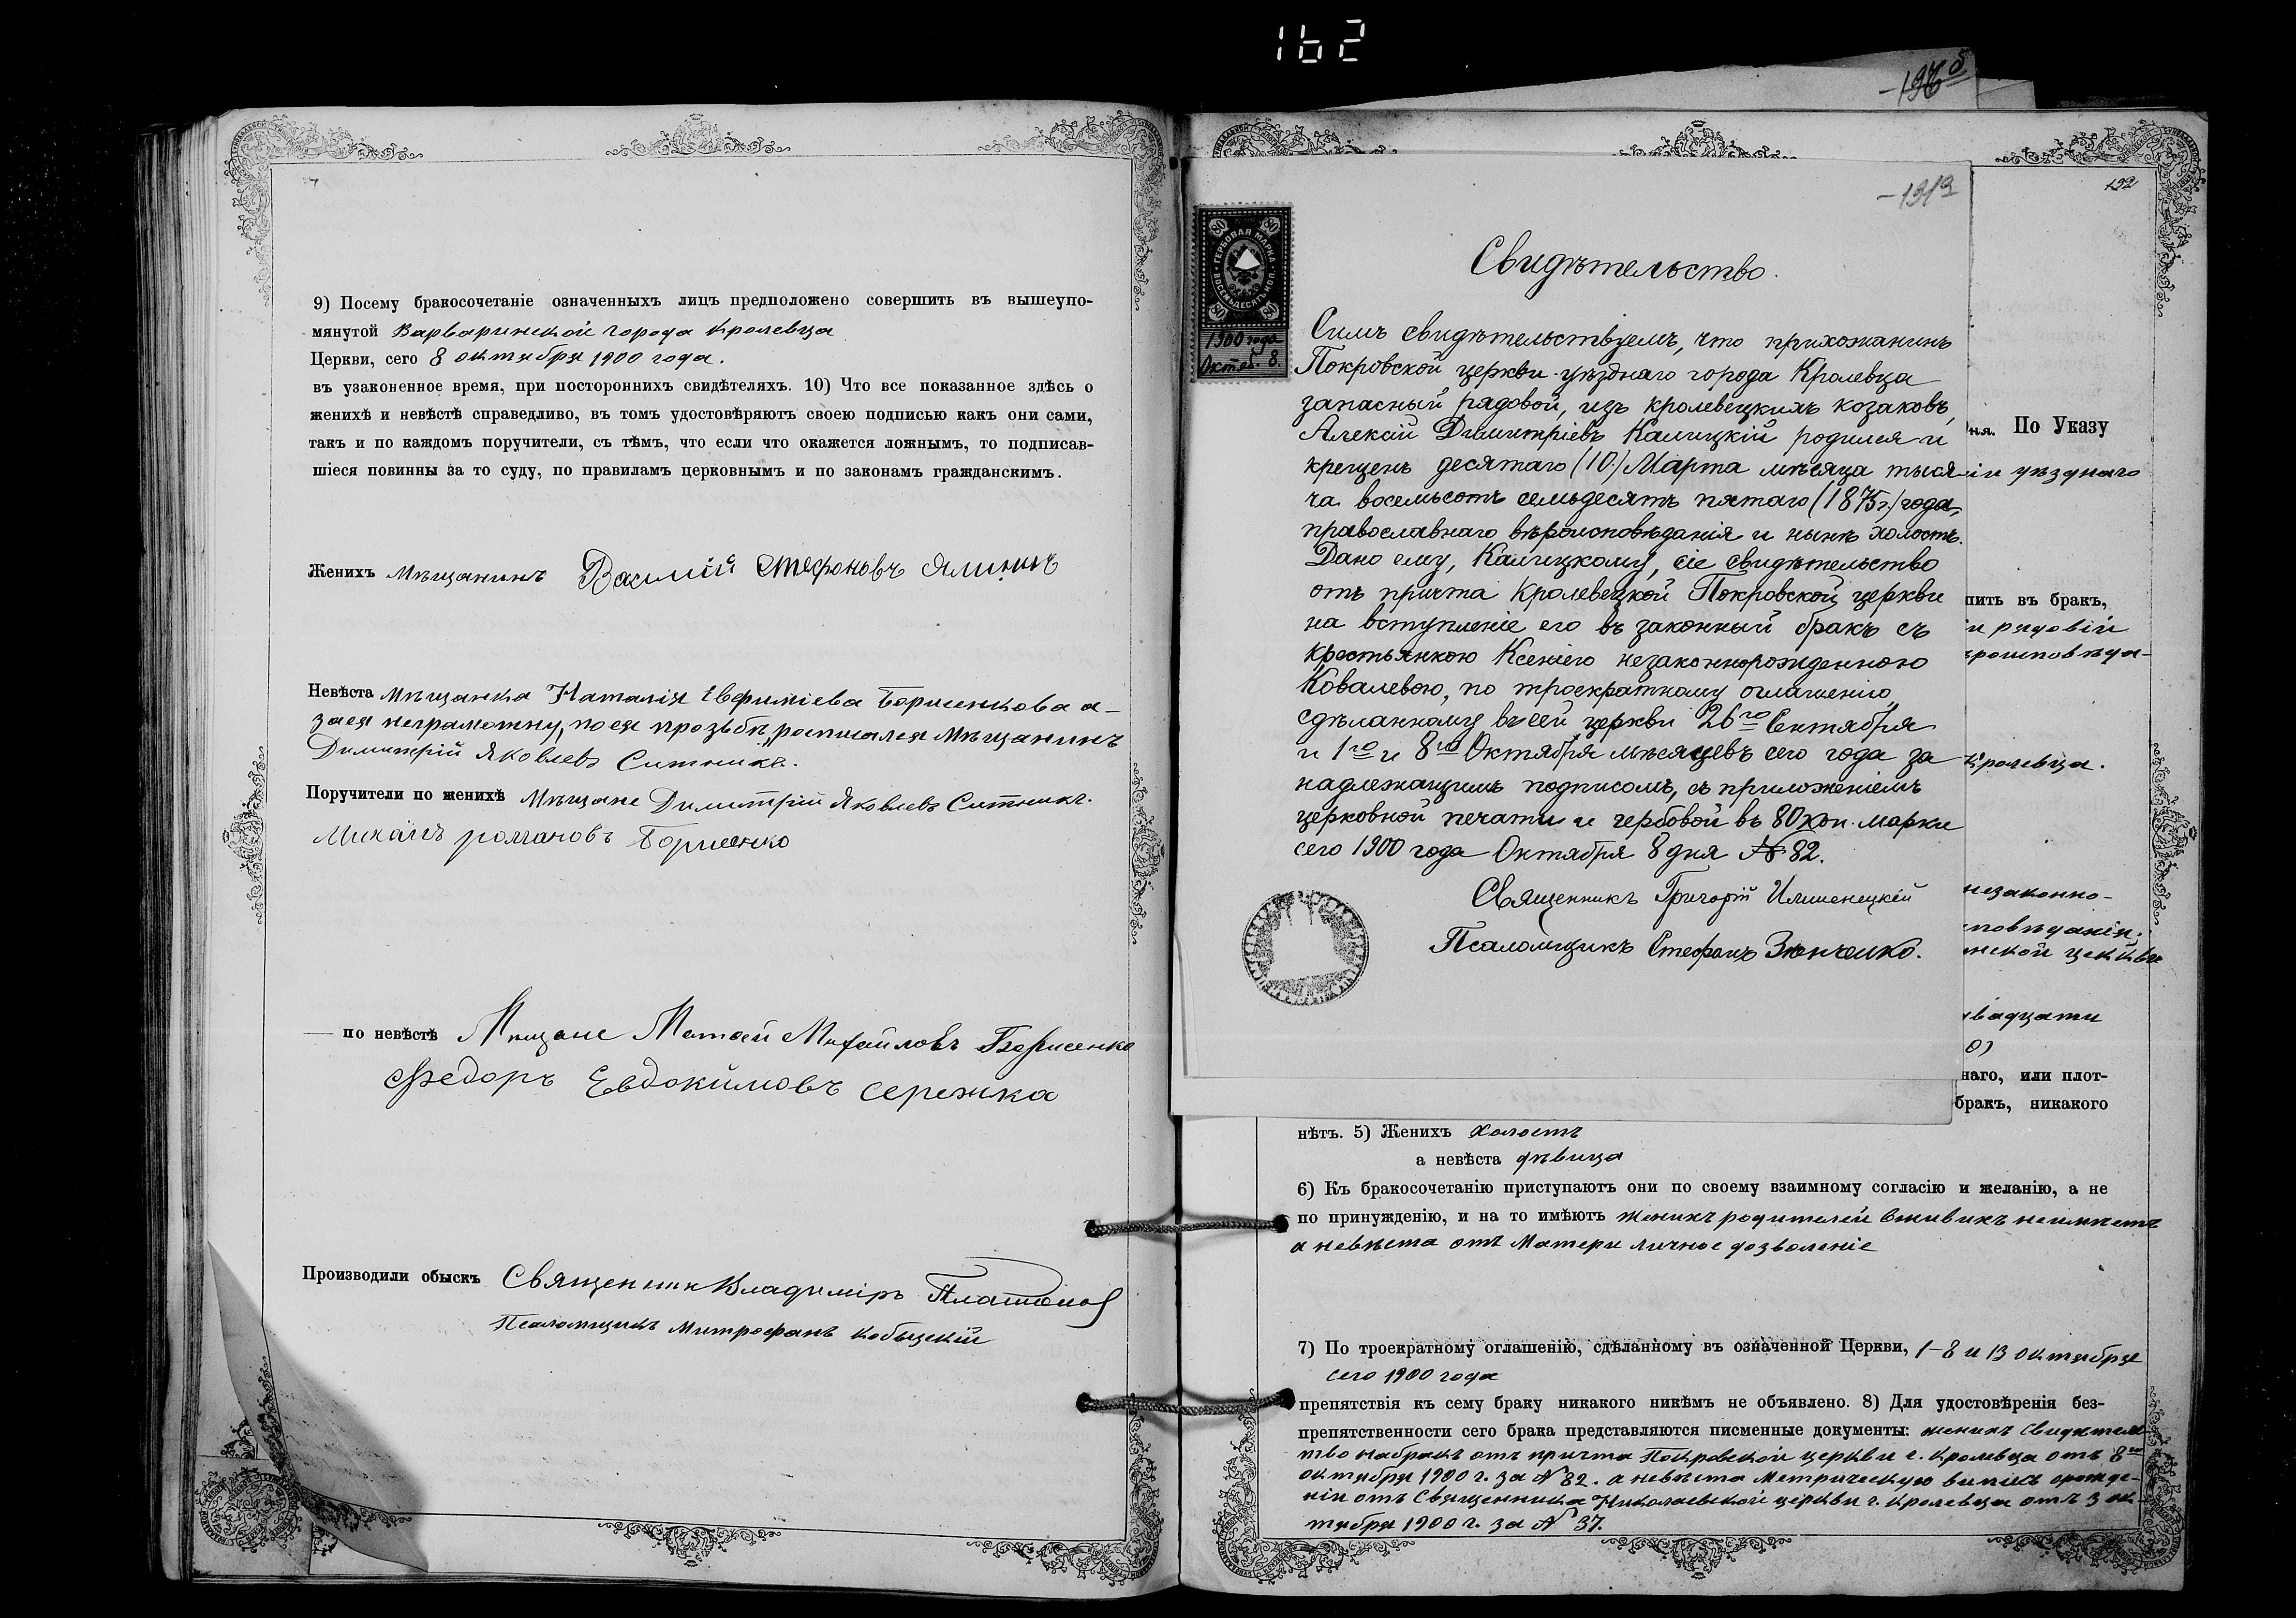 162
9) Посему бракосочетаніе означенныхъ лицъ предположено совершить въ вышеупо-
мянутой Варваринской города Кролевца
Церкви, сего 8 октября 1900 года.
въ узаконенное время, при постороннихъ свидѣтеляхъ. 10) Что все показанное здѣсь о
женихѣ и невѣстѣ справедливо, въ томъ удостовѣряютъ своею подписью какъ они сами,
такъ и по каждомъ поручители, съ тѣмъ, что если что окажется ложнымъ, то подписав-
шіеся повинны за то суду, по правиламъ церковнымъ и по законамъ гражданскимъ.
Женихъ Мѣщанинъ Василій Стефоновъ
Невѣста мѣщанка Наталія Евфиміева Борисенкова а
за ея неграмотну, по ея прозьбѣ, росписался Мѣщанинъ
Димитрій Яковлевъ Ситникъ.
Поручители по женихѣ Мѣщане Димитрій Яковлевъ Ситникъ.
Михаилъ романовъ Борисенко
— по невѣстѣ Мещане Матвей Михайловъ Борисенко
Федоръ Евдокимовъ Сережка
Производили обыскъ Священник Владиміръ Платонов
Псаломщикъ Митрофанъ Кобыцскій
192
-1313
ГЕРБОВАЯ МАРКА
ВОСЕМЬДЕСЯТЪ КОП.
80
1900 года
Октяб. 8.
Свидѣтельство.
Симъ свидѣтельствуемъ, что прихожанинъ
Покровской церкви уѣзднаго города Кролевца
запасный рядовой, изъ кролевецкихъ козаковъ,
Алексій Димитріевъ Калицкій родился и
крещенъ десятаго (10.) Марта мѣсяца тыся-
ча восемьсотъ семьдесятъ пятаго (1875 г.) года,
православнаго вѣроисповѣданія и нынѣ холостъ.
Дано ему, Калицкому, сіе свидѣтельство
отъ причта Кролевецкой Покровской церкви
на вступленіе его въ законный бракъ съ
крестьянкою Ксеніею незаконнорожденною
Ковалевою, по троекратному оглашенію,
сдѣланному въ сей церкви 26го Сентября
и 1го и 8го Октября мѣсяцевъ сего года за
надлежащимъ подписомъ, съ приложеніемъ
церковной печати и гербовой въ 80 коп. марки
сего 1900 года Октября 8 дня № 82.
Священникъ Григорій Илишенецкій
Псаломщикъ Стефанъ Зѣнченко.
ня. По Указу
ін уѣзднаго
пить въ бракъ,
и рядовій
роисповѣда-
Кролевца.
незаконно-
повѣданія.
нской церкви
двадцати
0)
наго, или плот-
бракъ, никакого
нѣтъ. 5) Женихъ холостъ
а невѣста дѣвица
6) Къ бракосочетанію приступаютъ они по своему взаимному согласію и желанію, а не
по принужденію, и на то имѣютъ женихъ родителей вживихъ неимѣетъ
а невѣста отъ Матери личное дозволеніе
7) По троекратному оглашенію, сдѣланному въ означенной Церкви, 1-8 и 13 октября
сего 1900 года
препятствія къ сему браку никакого никѣмъ не объявлено. 8) Для удостовѣренія без-
препятственности сего брака представляются писменные документы: женихъ Свидѣтель-
тво набракъ отъ причта Покровской церкви г. Кролевца отъ 8го
октября 1900 г. за № 82. а невѣста Метрическую выпись орожде-
ніи отъ Священника Николаевской церкви г. Кролевца отъ 3 ок-
тября 1900 г. за № 37.